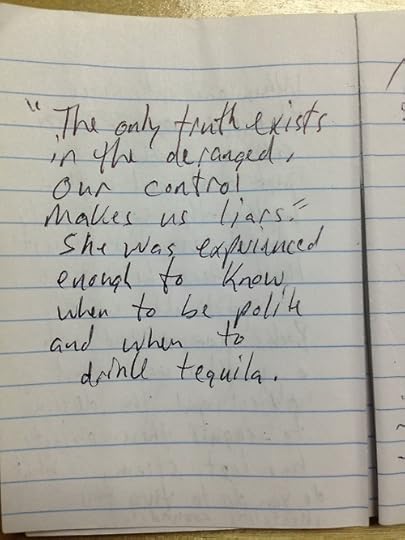 "The only truth exists
in the deranged,
our control
makes us liars."
She was expwinced
enough to know
when to be polite
and when to
drink tequila.